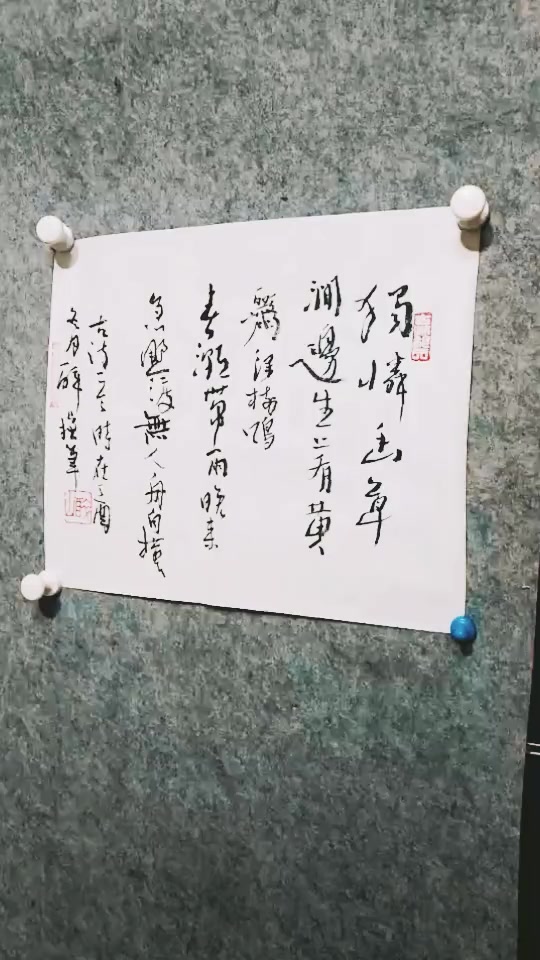 獨憐幽草
澗邊生上有黄
鸝深樹鳴
春潮帶雨晚来
急野渡無人舟自横
古詩一首時在丁酉
冬月
筆